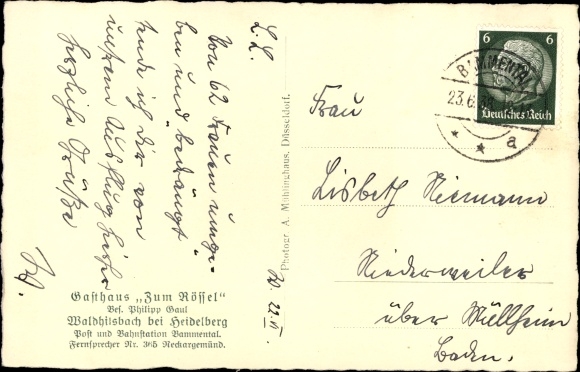 L. L.
Von 62 Frauen umge-
ben und "bedrängt"
sende ich Dir von
unserem Ausflug hier
herzliche Grüße
Gasthaus „Zum Rössel"
Bes. Philipp Gaul
Waldhilsbach bei Heidelberg
Post und Bahnstation Bammental.
Fernsprecher Nr. 365 Neckargemünd.
W. 22.VI.
Photogr. A. Mühlinghaus, Düsseldorf.
6 6
Deutsches Reich
BAMMENTAL
23.6.
a
Frau
Lisbeth Niemann
Niederweiler
über Müllheim
Baden.